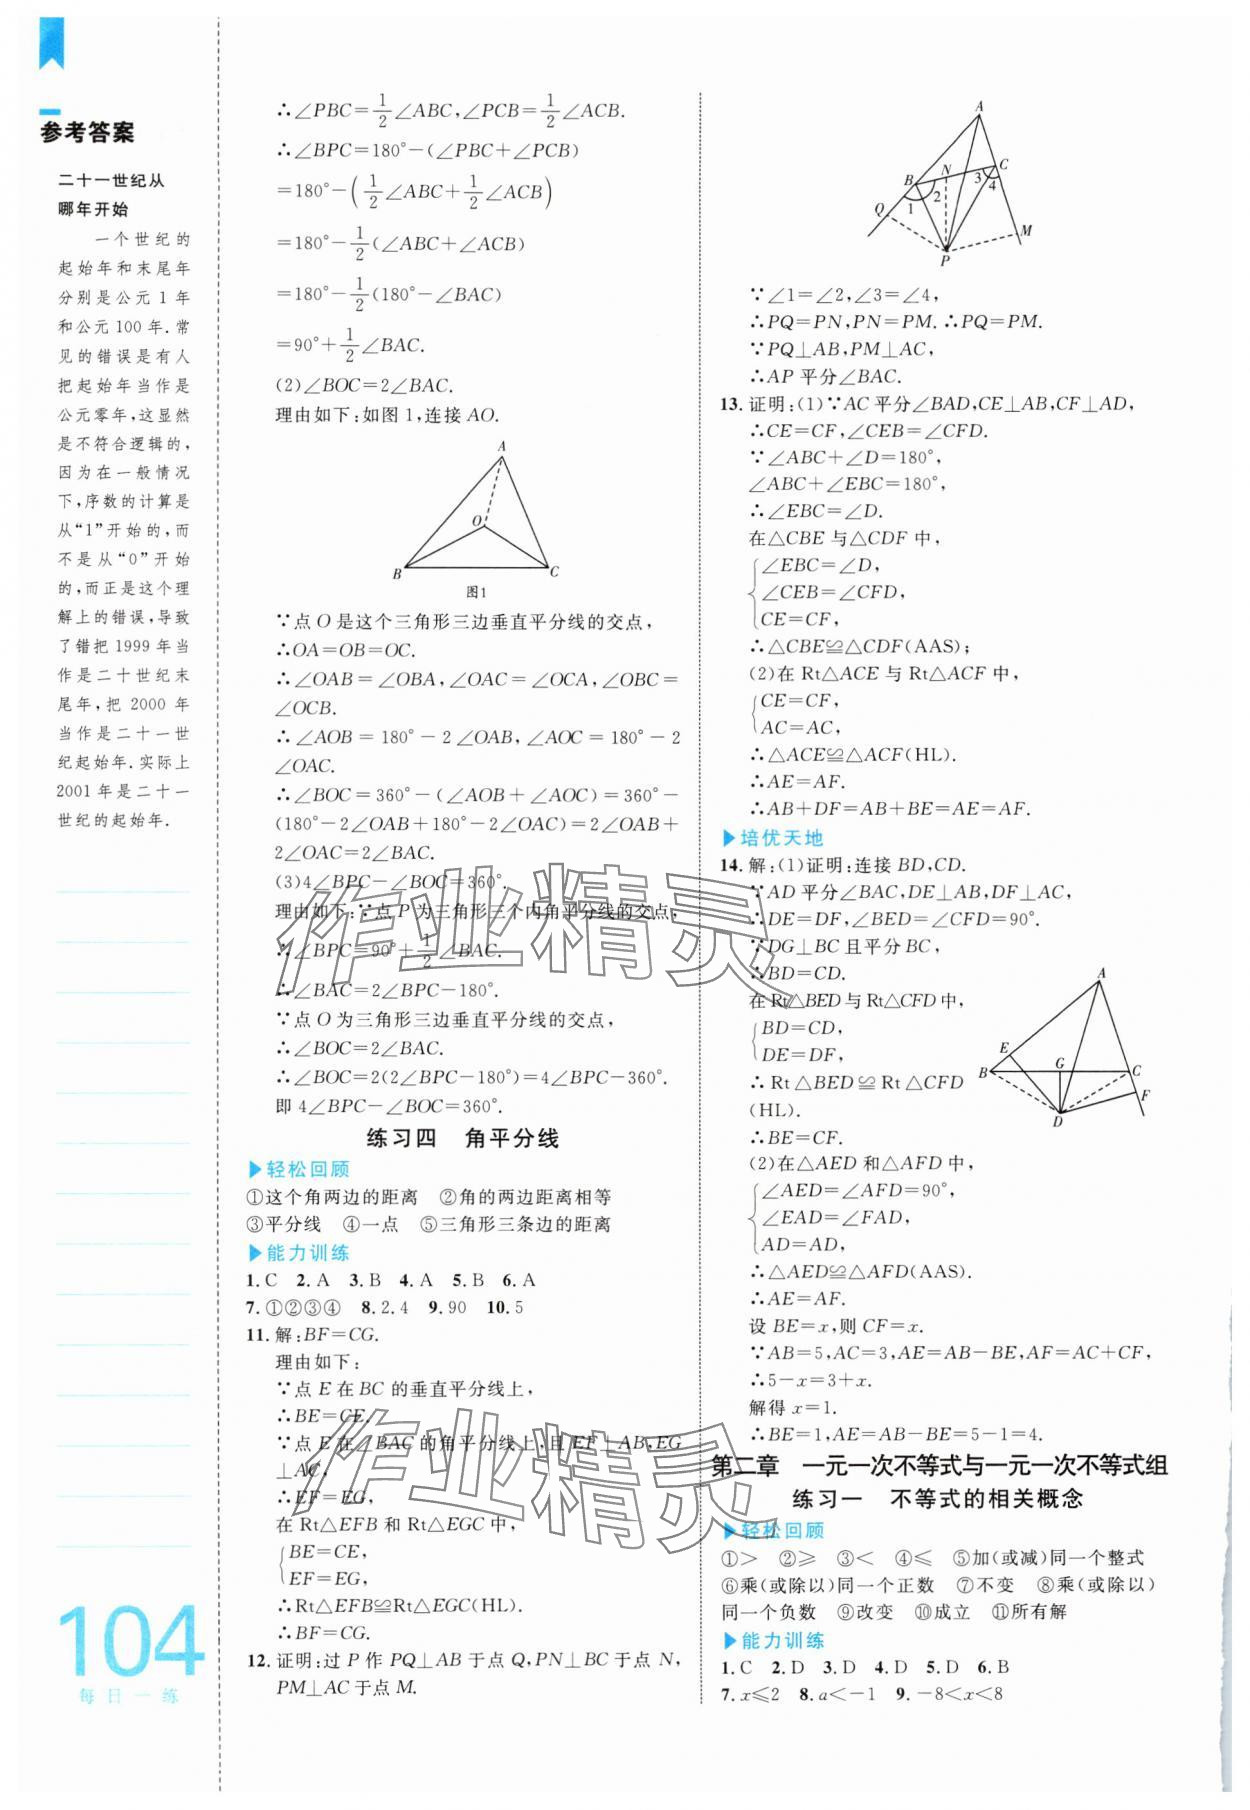 参考答案
二十一世纪从
哪年开始
一个世纪的
起始年和末尾年
分别是公元 1 年
和公元 100 年. 常
见的错误是有人
把起始年当作是
公元零年,这显然
是不符合逻辑的,
因为在一般情况
下,序数的计算是
从“1”开始的,而
不是从“0”开始
的,而正是这个理
解上的错误,导致
了错把 1999 年当
作是二十世纪末
尾年,把 2000 年
当作是二十一世
纪起始年. 实际上
2001 年是二十一
世纪的起始年.
104
每日一练
∴∠PBC=1/2∠ABC,∠PCB=1/2∠ACB.
∴∠BPC=180°-(∠PBC+∠PCB)
=180°-(1/2∠ABC+1/2∠ACB)
=180°-1/2(∠ABC+∠ACB)
=180°-1/2(180°-∠BAC)
=90°+1/2∠BAC.
(2)∠BOC=2∠BAC.
理由如下:如图 1,连接 AO.
A
O
B
C
图1
∵点 O 是这个三角形三边垂直平分线的交点,
∴OA=OB=OC.
∴∠OAB=∠OBA,∠OAC=∠OCA,∠OBC=
∠OCB.
∴∠AOB=180°-2∠OAB,∠AOC=180°-2
∠OAC.
∴∠BOC=360°-(∠AOB+∠AOC)=360°-
(180°-2∠OAB+180°-2∠OAC)=2∠OAB+
2∠OAC=2∠BAC.
(3)4∠BPC-∠BOC=360°.
理由如下:∵点 P 为三角形三个内角平分线的交点,
∴∠BPC=90°+1/2∠BAC.
∴∠BAC=2∠BPC-180°.
∵点 O 为三角形三边垂直平分线的交点,
∴∠BOC=2∠BAC.
∴∠BOC=2(2∠BPC-180°)=4∠BPC-360°.
即 4∠BPC-∠BOC=360°.
练习四 角平分线
▶轻松回顾
①这个角两边的距离 ②角的两边距离相等
③平分线 ④一点 ⑤三角形三条边的距离
▶能力训练
1. C 2. A 3. B 4. A 5. B 6. A
7. ①②③④ 8. 2.4 9. 90 10. 5
11. 解:BF=CG.
理由如下:
∵点 E 在 BC 的垂直平分线上,
∴BE=CE.
∵点 E 在∠BAC 的角平分线上,且 EF⊥AB,EG
⊥AC,
∴EF=EG.
在 Rt△EFB 和 Rt△EGC 中,
BE=CE,
EF=EG,
∴Rt△EFB≌Rt△EGC(HL).
∴BF=CG.
12. 证明:过 P 作 PQ⊥AB 于点 Q,PN⊥BC 于点 N,
PM⊥AC 于点 M.
A
B
N
C
3
4
2
1
Q
M
P
∵∠1=∠2,∠3=∠4,
∴PQ=PN,PN=PM. ∴PQ=PM.
∵PQ⊥AB,PM⊥AC,
∴AP 平分∠BAC.
13. 证明:(1)∵AC 平分∠BAD,CE⊥AB,CF⊥AD,
∴CE=CF,∠CEB=∠CFD.
∵∠ABC+∠D=180°,
∠ABC+∠EBC=180°,
∴∠EBC=∠D.
在△CBE 与△CDF 中,
∠EBC=∠D,
∠CEB=∠CFD,
CE=CF,
∴△CBE≌△CDF(AAS);
(2)在 Rt△ACE 与 Rt△ACF 中,
CE=CF,
AC=AC,
∴△ACE≌△ACF(HL).
∴AE=AF.
∴AB+DF=AB+BE=AE=AF.
▶培优天地
14. 解:(1)证明:连接 BD,CD.
∵AD 平分∠BAC,DE⊥AB,DF⊥AC,
∴DE=DF,∠BED=∠CFD=90°.
∵DG⊥BC 且平分 BC,
∴BD=CD.
在 Rt△BED 与 Rt△CFD 中,
BD=CD,
DE=DF,
∴Rt△BED≌Rt△CFD
(HL).
∴BE=CF.
A
E
B
G
C
F
D
(2)在△AED 和△AFD 中,
∠AED=∠AFD=90°,
∠EAD=∠FAD,
AD=AD,
∴△AED≌△AFD(AAS).
∴AE=AF.
设 BE=x,则 CF=x.
∵AB=5,AC=3,AE=AB-BE,AF=AC+CF,
∴5-x=3+x.
解得 x=1.
∴BE=1,AE=AB-BE=5-1=4.
第二章 一元一次不等式与一元一次不等式组
练习一 不等式的相关概念
▶轻松回顾
①> ②≥ ③< ④≤ ⑤加(或减)同一个整式
⑥乘(或除以)同一个正数 ⑦不变 ⑧乘(或除以)
同一个负数 ⑨改变 ⑩成立 ⑪所有解
▶能力训练
1. C 2. D 3. D 4. D 5. D 6. B
7. x≤2 8. a<-1 9. -8<x<8
作业精灵
作业精灵